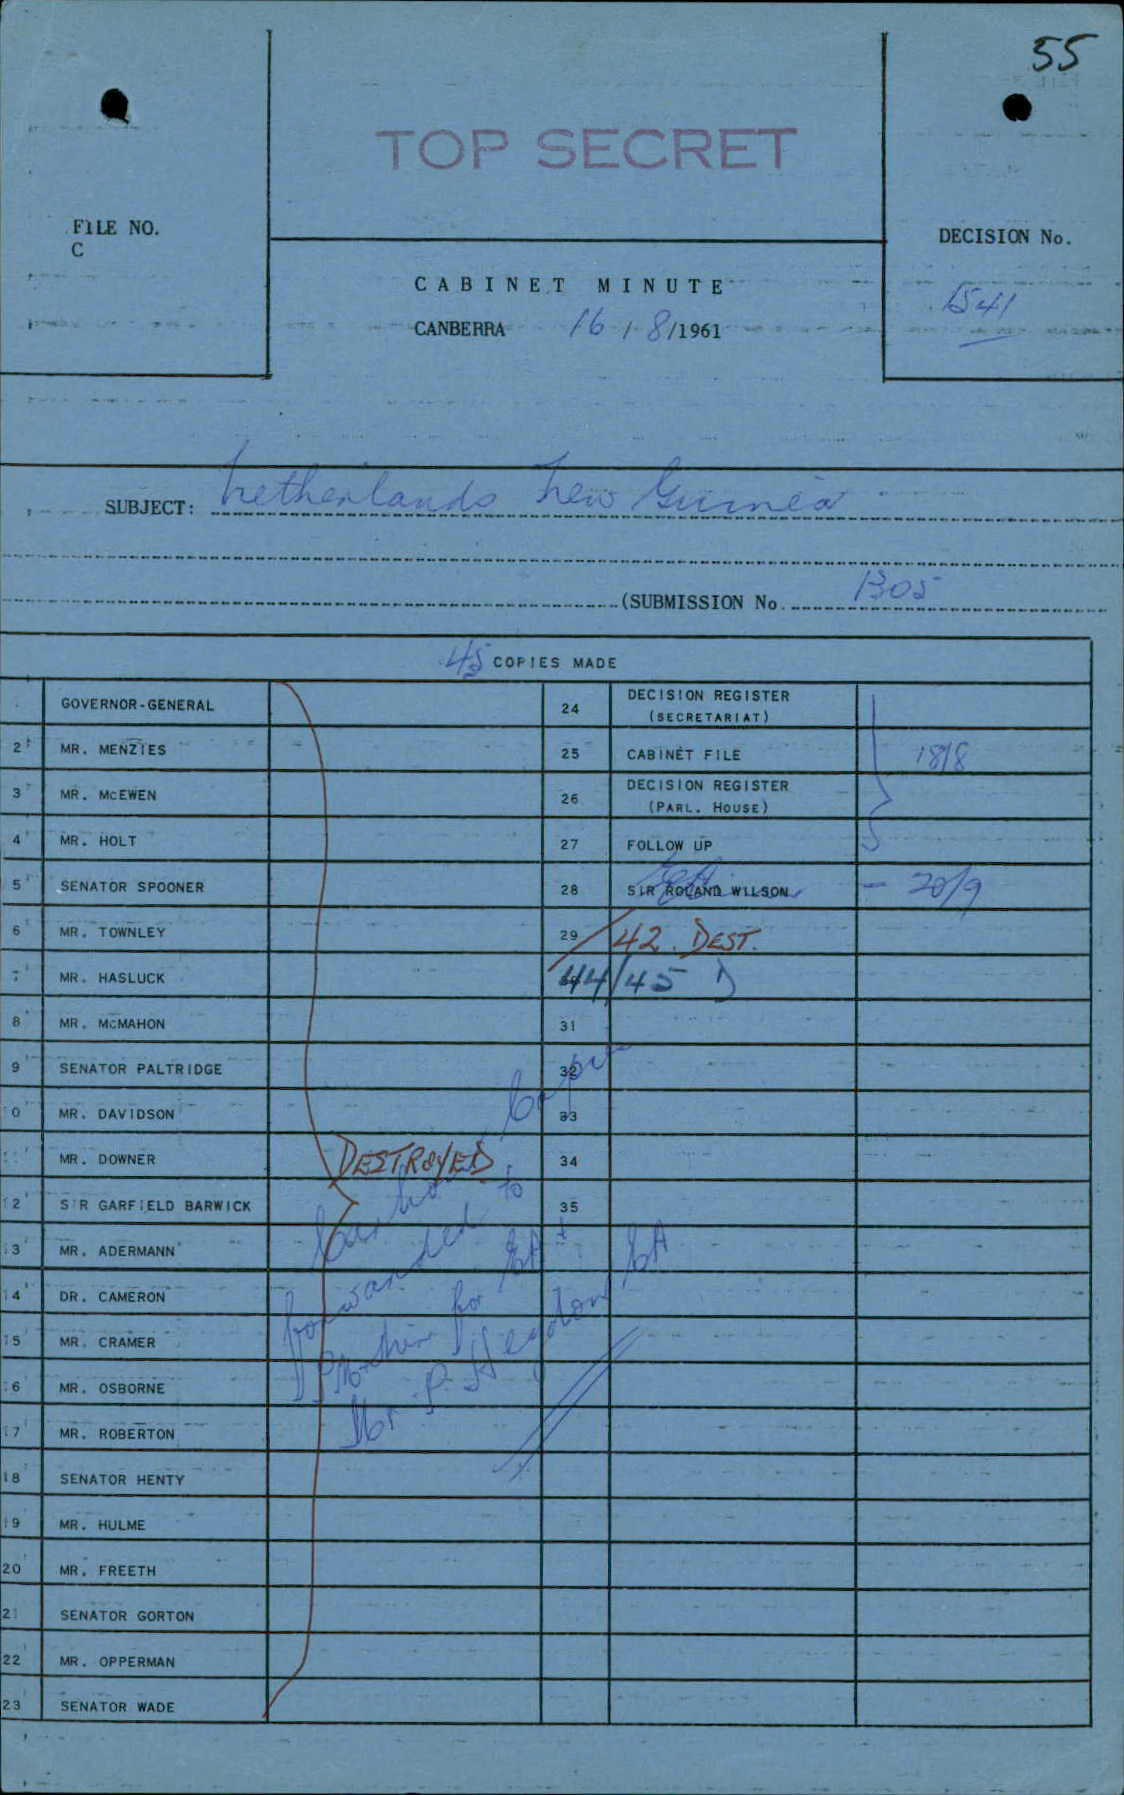 55
TOP SECRET
FILE NO.
C
DECISION No.
1541
CABINET MINUTE
CANBERRA 16/8/1961
SUBJECT: Netherlands New Guinea
(SUBMISSION No. 1305
45 COPIES MADE
GOVERNOR-GENERAL
2 MR. MENZIES
3 MR. McEWEN
4 MR. HOLT
5 SENATOR SPOONER
6 MR. TOWNLEY
7 MR. HASLUCK
8 MR. McMAHON
9 SENATOR PALTRIDGE
0 MR. DAVIDSON
MR. DOWNER
12 SIR GARFIELD BARWICK
13 MR. ADERMANN
14 DR. CAMERON
15 MR. CRAMER
16 MR. OSBORNE
17 MR. ROBERTON
18 SENATOR HENTY
19 MR. HULME
20 MR. FREETH
21 SENATOR GORTON
22 MR. OPPERMAN
23 SENATOR WADE
DESTROYED
forwarded to
for EA +
Mr P. Heydon EA
24 DECISION REGISTER
(SECRETARIAT)
25 CABINET FILE 18/8
26 DECISION REGISTER
(PARL. HOUSE)
27 FOLLOW UP
28 SIR ROLAND WILSON - 20/9
29 / 42. DEST.
44/45 D
31
32
33
34
35